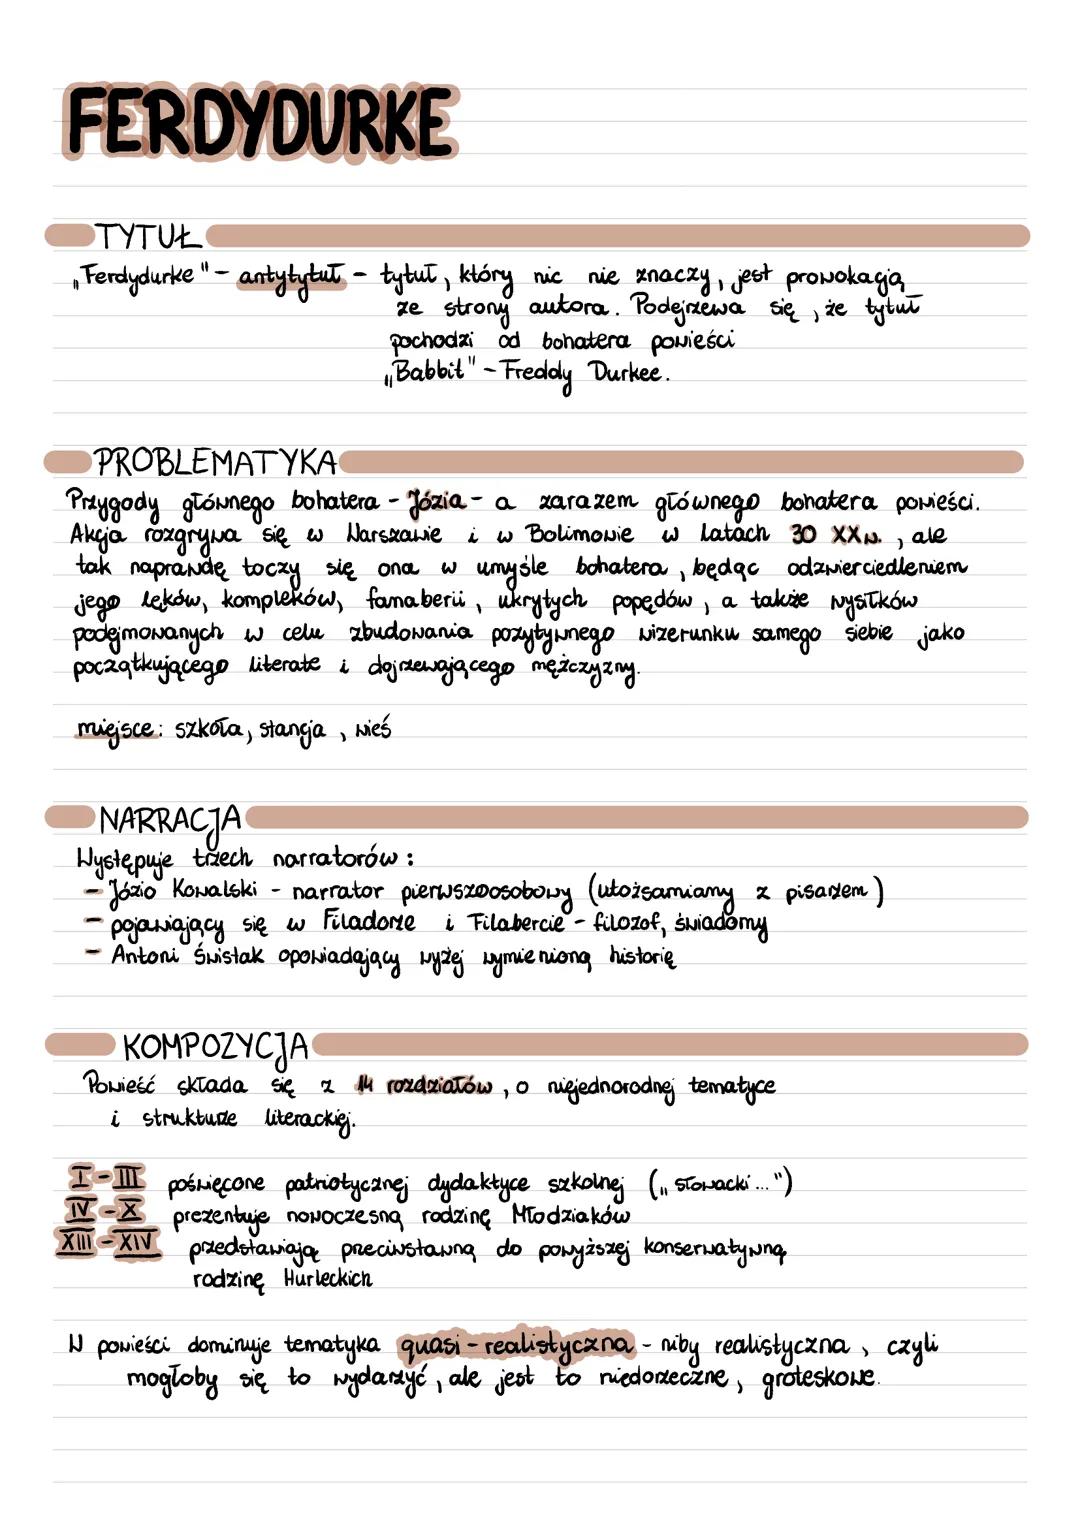 FERDYDURKE
TYTUŁ
„Ferdydurke" - antytytuł - tytuł, który nic nie znaczy, jest prowokacją
ze strony autora. Podejrzewa się, że tytuł
pochodzi od bohatera powieści
„Babbit" - Freddy Durkee.
PROBLEMATYKA
Przygody głównego bohatera - Józia - a zarazem głównego bohatera powieści.
Akcja rozgrywa się w Warszawie i w Bolimowie w latach 30 XXw., ale
tak naprawdę toczy się ona w umyśle bohatera, będąc odzwierciedleniem
jego lęków, kompleków, famaberii, ukrytych popędów, a także wysiłków
podejmowanych w celu zbudowania pozytywnego wizerunku samego siebie jako
początkującego literate i dojrzewającego mężczyzny.
miejsce: szkoła, stancja, wieś
NARRACJA
Występuje trzech narratorów:
- Józio Kowalski - narrator pierwszoosobowy (utożsamiany z pisarzem)
- pojawiający się w Filadorze i Filabercie - filozof, świadomy
- Antoni Świstak opowiadający wyżej wymienioną historię
KOMPOZYCJA
Powieść składa się z 14 rozdziałów, o niejednorodnej tematyce
i strukturze literackiej.
I - III poświęcone patriotycznej dydaktyce szkolnej („słowacki...")
IV - X prezentuje nowoczesną rodzinę Młodziaków
XIII - XIV przedstawiają preciwstawną do powyższej konserwatywną
rodzinę Hurleckich
W powieści dominuje tematyka quasi - realistyczna - niby realistyczna, czyli
mogłoby się to wydarzyć, ale jest to niedorzeczne, groteskowe.